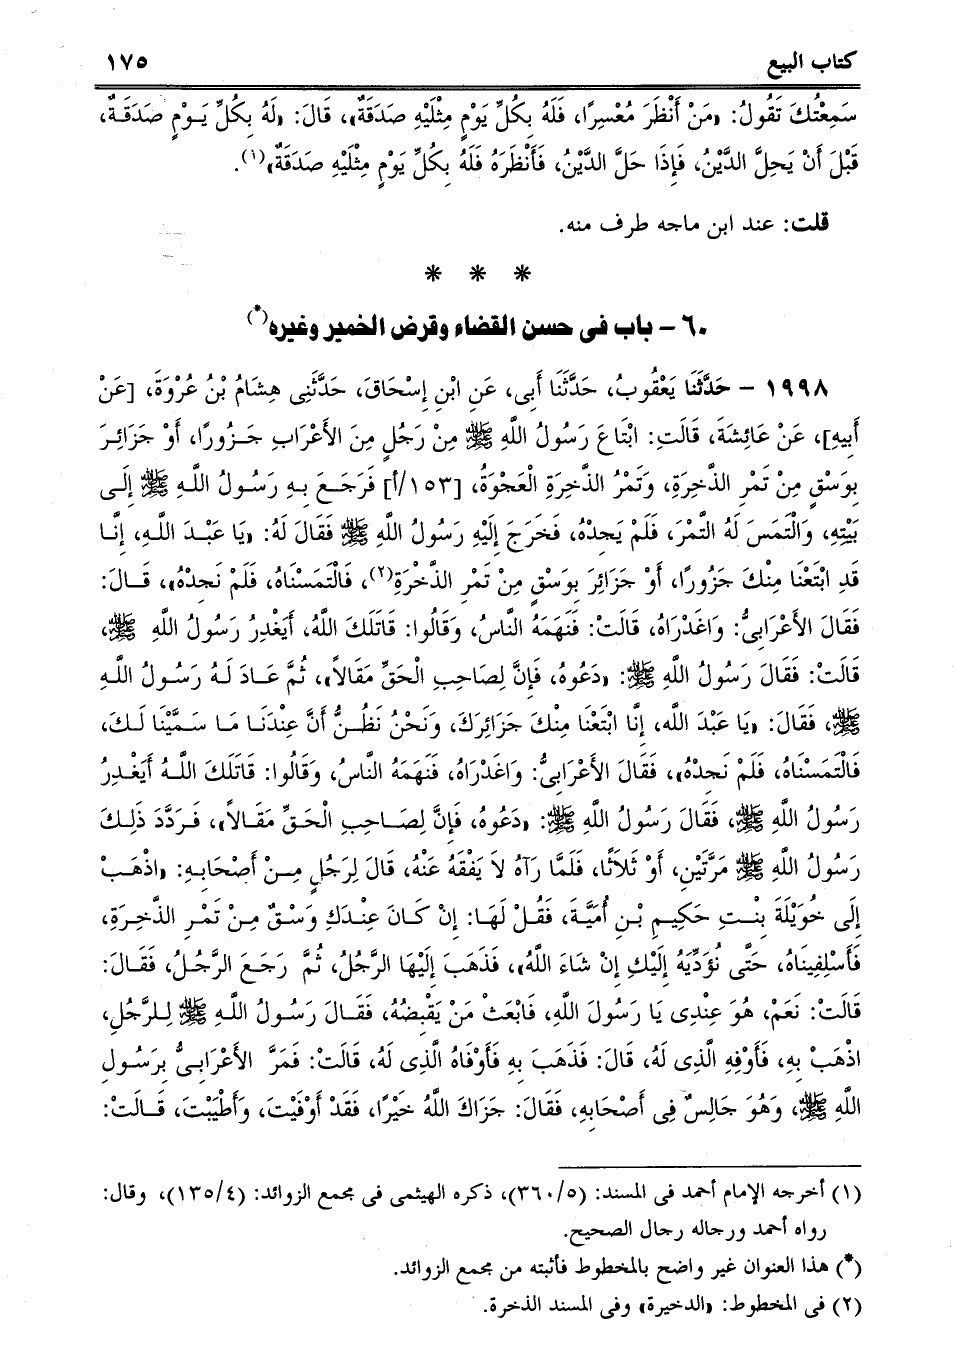 كتاب البيع ١٧٥
سَمِعْتُكَ تَقُولُ: «مَنْ أَنْظَرَ مُعْسِرًا، فَلَهُ بِكُلِّ يَوْمٍ مِثْلَيْهِ صَدَقَةٌ»، قَالَ: «لَهُ بِكُلِّ يَـوْمٍ صَدَقَـةٌ،
قَبْلَ أَنْ يَحِلَّ الدَّيْنُ، فَإِذَا حَلَّ الدَّيْنُ، فَأَنْظَرَهُ فَلَهُ بِكُلِّ يَوْمٍ مِثْلَيْهِ صَدَقَةٌ»(١).
قلت: عند ابن ماجه طرف منه.
* * *
٦٠ - باب فى حسن القضاء وقرض الخمير وغيره(*)
١٩٩٨ - حَدَّثَنَا يَعْقُوبُ، حَدَّثَنَا أَبِى، عَنِ ابْنِ إِسْحَاقَ، حَدَّثَنِى هِشَامُ بْنُ عُرْوَةَ، [عَنْ
أَبِيهِ]، عَنْ عَائِشَةَ، قَالَتِ: ابْتَاعَ رَسُولُ اللَّهِ ﷺ مِنْ رَجُلٍ مِنَ الأَعْرَابِ جَـزُورًا، أَوْ جَزَائِـرَ
بِوَسْقٍ مِنْ تَمْرِ الذَّخِرَةِ، وَتَمْرُ الذَّخِرَةِ الْعَجْوَةُ، [١٥٣/أ] فَرَجَعَ بِـهِ رَسُـولُ اللَّـهِ ﷺ إِلَى
بَيْتِهِ، وَالْتَمَسَ لَهُ التَّمْرَ، فَلَمْ يَجِدْهُ، فَخَرَجَ إِلَيْهِ رَسُولُ اللَّهِ ﷺ فَقَالَ لَهُ: «يَا عَبْدَ اللَّـهِ، إِنَّـا
قَدِ ابْتَعْنَا مِنْكَ جَزُورًا، أَوْ جَزَائِرَ بِوَسْقٍ مِنْ تَمْرِ الذَّخْرَةِ(٢)، فَالْتَمَسْنَاهُ، فَلَمْ نَجِدْهُ»، قَـالَ:
فَقَالَ الأَعْرَابِىُّ: وَاغَدْرَاهُ، قَالَتْ: فَنَهَمَهُ النَّاسُ، وَقَالُوا: قَاتَلَكَ اللَّهُ، أَيَغْدِرُ رَسُولُ اللَّهِ ﷺ،
قَالَتْ: فَقَالَ رَسُولُ اللَّهِ ﷺ: «دَعُوهُ، فَإِنَّ لِصَاحِبِ الْحَقِّ مَقَالاً»، ثُمَّ عَـادَ لَـهُ رَسُـولُ اللَّـهِ
ﷺ، فَقَالَ: «يَا عَبْدَ اللَّه، إِنَّا ابْتَعْنَا مِنْكَ جَزَائِرَكَ، وَنَحْنُ نَظُـنُّ أَنَّ عِنْدَنَـا مَـا سَـمَّيْنَا لَـكَ،
فَالْتَمَسْنَاهُ، فَلَمْ نَجِدْهُ»، فَقَالَ الأَعْرَابِىُّ: وَاغَدْرَاهُ، فَنَهَمَهُ النَّاسُ، وَقَالُوا: قَاتَلَكَ اللَّـهُ أَيَغْـدِرُ
رَسُولُ اللَّهِ ﷺ، فَقَالَ رَسُولُ اللَّهِ ﷺ: «دَعُوهُ، فَإِنَّ لِصَـاحِبِ الْحَـقِّ مَقَـالاً»، فَـرَدَّدَ ذَلِـكَ
رَسُولُ اللَّهِ ﷺ مَرَّتَيْنِ، أَوْ ثَلاَثًا، فَلَمَّا رَآهُ لاَ يَفْقَهُ عَنْهُ، قَالَ لِرَجُلٍ مِـنْ أَصْحَابِـهِ: «اذْهَـبْ
إِلَى خُوَيْلَةَ بِنْـتِ حَكِيـمِ بْـنِ أُمَيَّةَ، فَقُـلْ لَهَـا: إِنْ كَـانَ عِنْـدَكِ وَسْـقٌ مِـنْ تَمْـرِ الذَّخِـرَةِ،
فَأَسْلِفِينَاهُ، حَتَّى نُؤَدِّيَهُ إِلَيْكِ إِنْ شَاءَ اللَّهُ»، فَذَهَبَ إِلَيْهَا الرَّجُلُ، ثُمَّ رَجَعَ الرَّجُـلُ، فَقَـالَ:
قَالَتْ: نَعَمْ، هُوَ عِنْدِى يَا رَسُولَ اللَّهِ، فَابْعَثْ مَنْ يَقْبِضُهُ، فَقَـالَ رَسُـولُ اللَّـهِ ﷺ لِلـرَّجُلِ،
اذْهَبْ بِهِ، فَأَوْفِهِ الَّذِى لَهُ، قَالَ: فَذَهَبَ بِهِ فَأَوْفَاهُ الَّذِى لَهُ، قَالَتْ: فَمَرَّ الأَعْرَابِىُّ بِرَسُولِ
اللَّهِ ﷺ، وَهُوَ جَالِسٌ فِى أَصْحَابِهِ، فَقَالَ: جَزَاكَ اللَّهُ خَيْرًا، فَقَدْ أَوْفَيْتَ، وَأَطْيَبْتَ، قَـالَتْ:
(١) أخرجه الإمام أحمد فى المسند: (٣٦٠/٥)، ذكره الهيثمى فى مجمع الزوائد: (١٣٥/٤)، وقال:
رواه أحمد ورجاله رجال الصحيح.
(*) هذا العنوان غير واضح بالمخطوط فأثبته من مجمع الزوائد.
(٢) فى المخطوط: «الدخيرة» وفى المسند الذخرة.